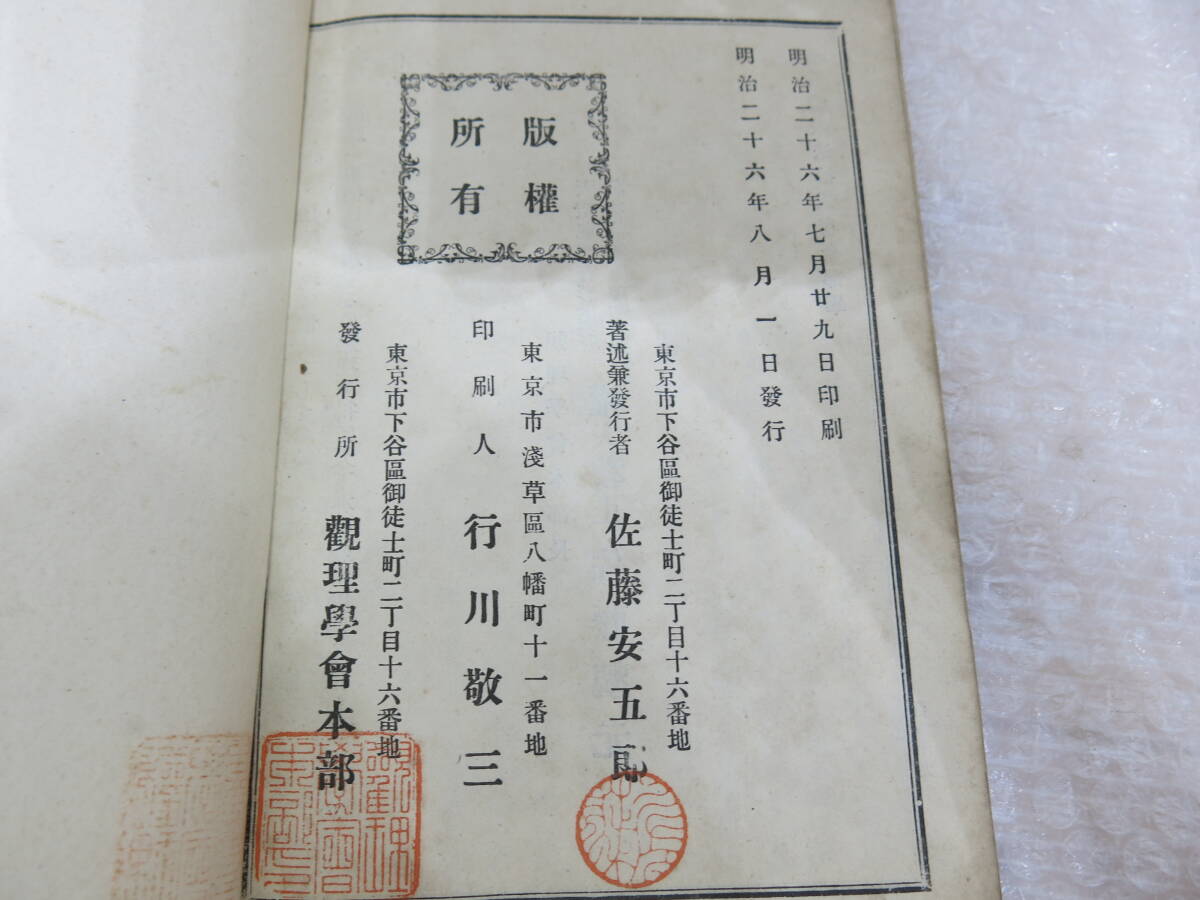 明治二十六年七月廿九日印刷
明治二十六年八月一日發行
版權
所有
東京市下谷區御徒士町二丁目十六番地
著述兼發行者 佐藤安五郎
東京市淺草區八幡町十一番地
印刷人 行川敬三
東京市下谷區御徒士町二丁目十六番地
發行所 觀理學會本部